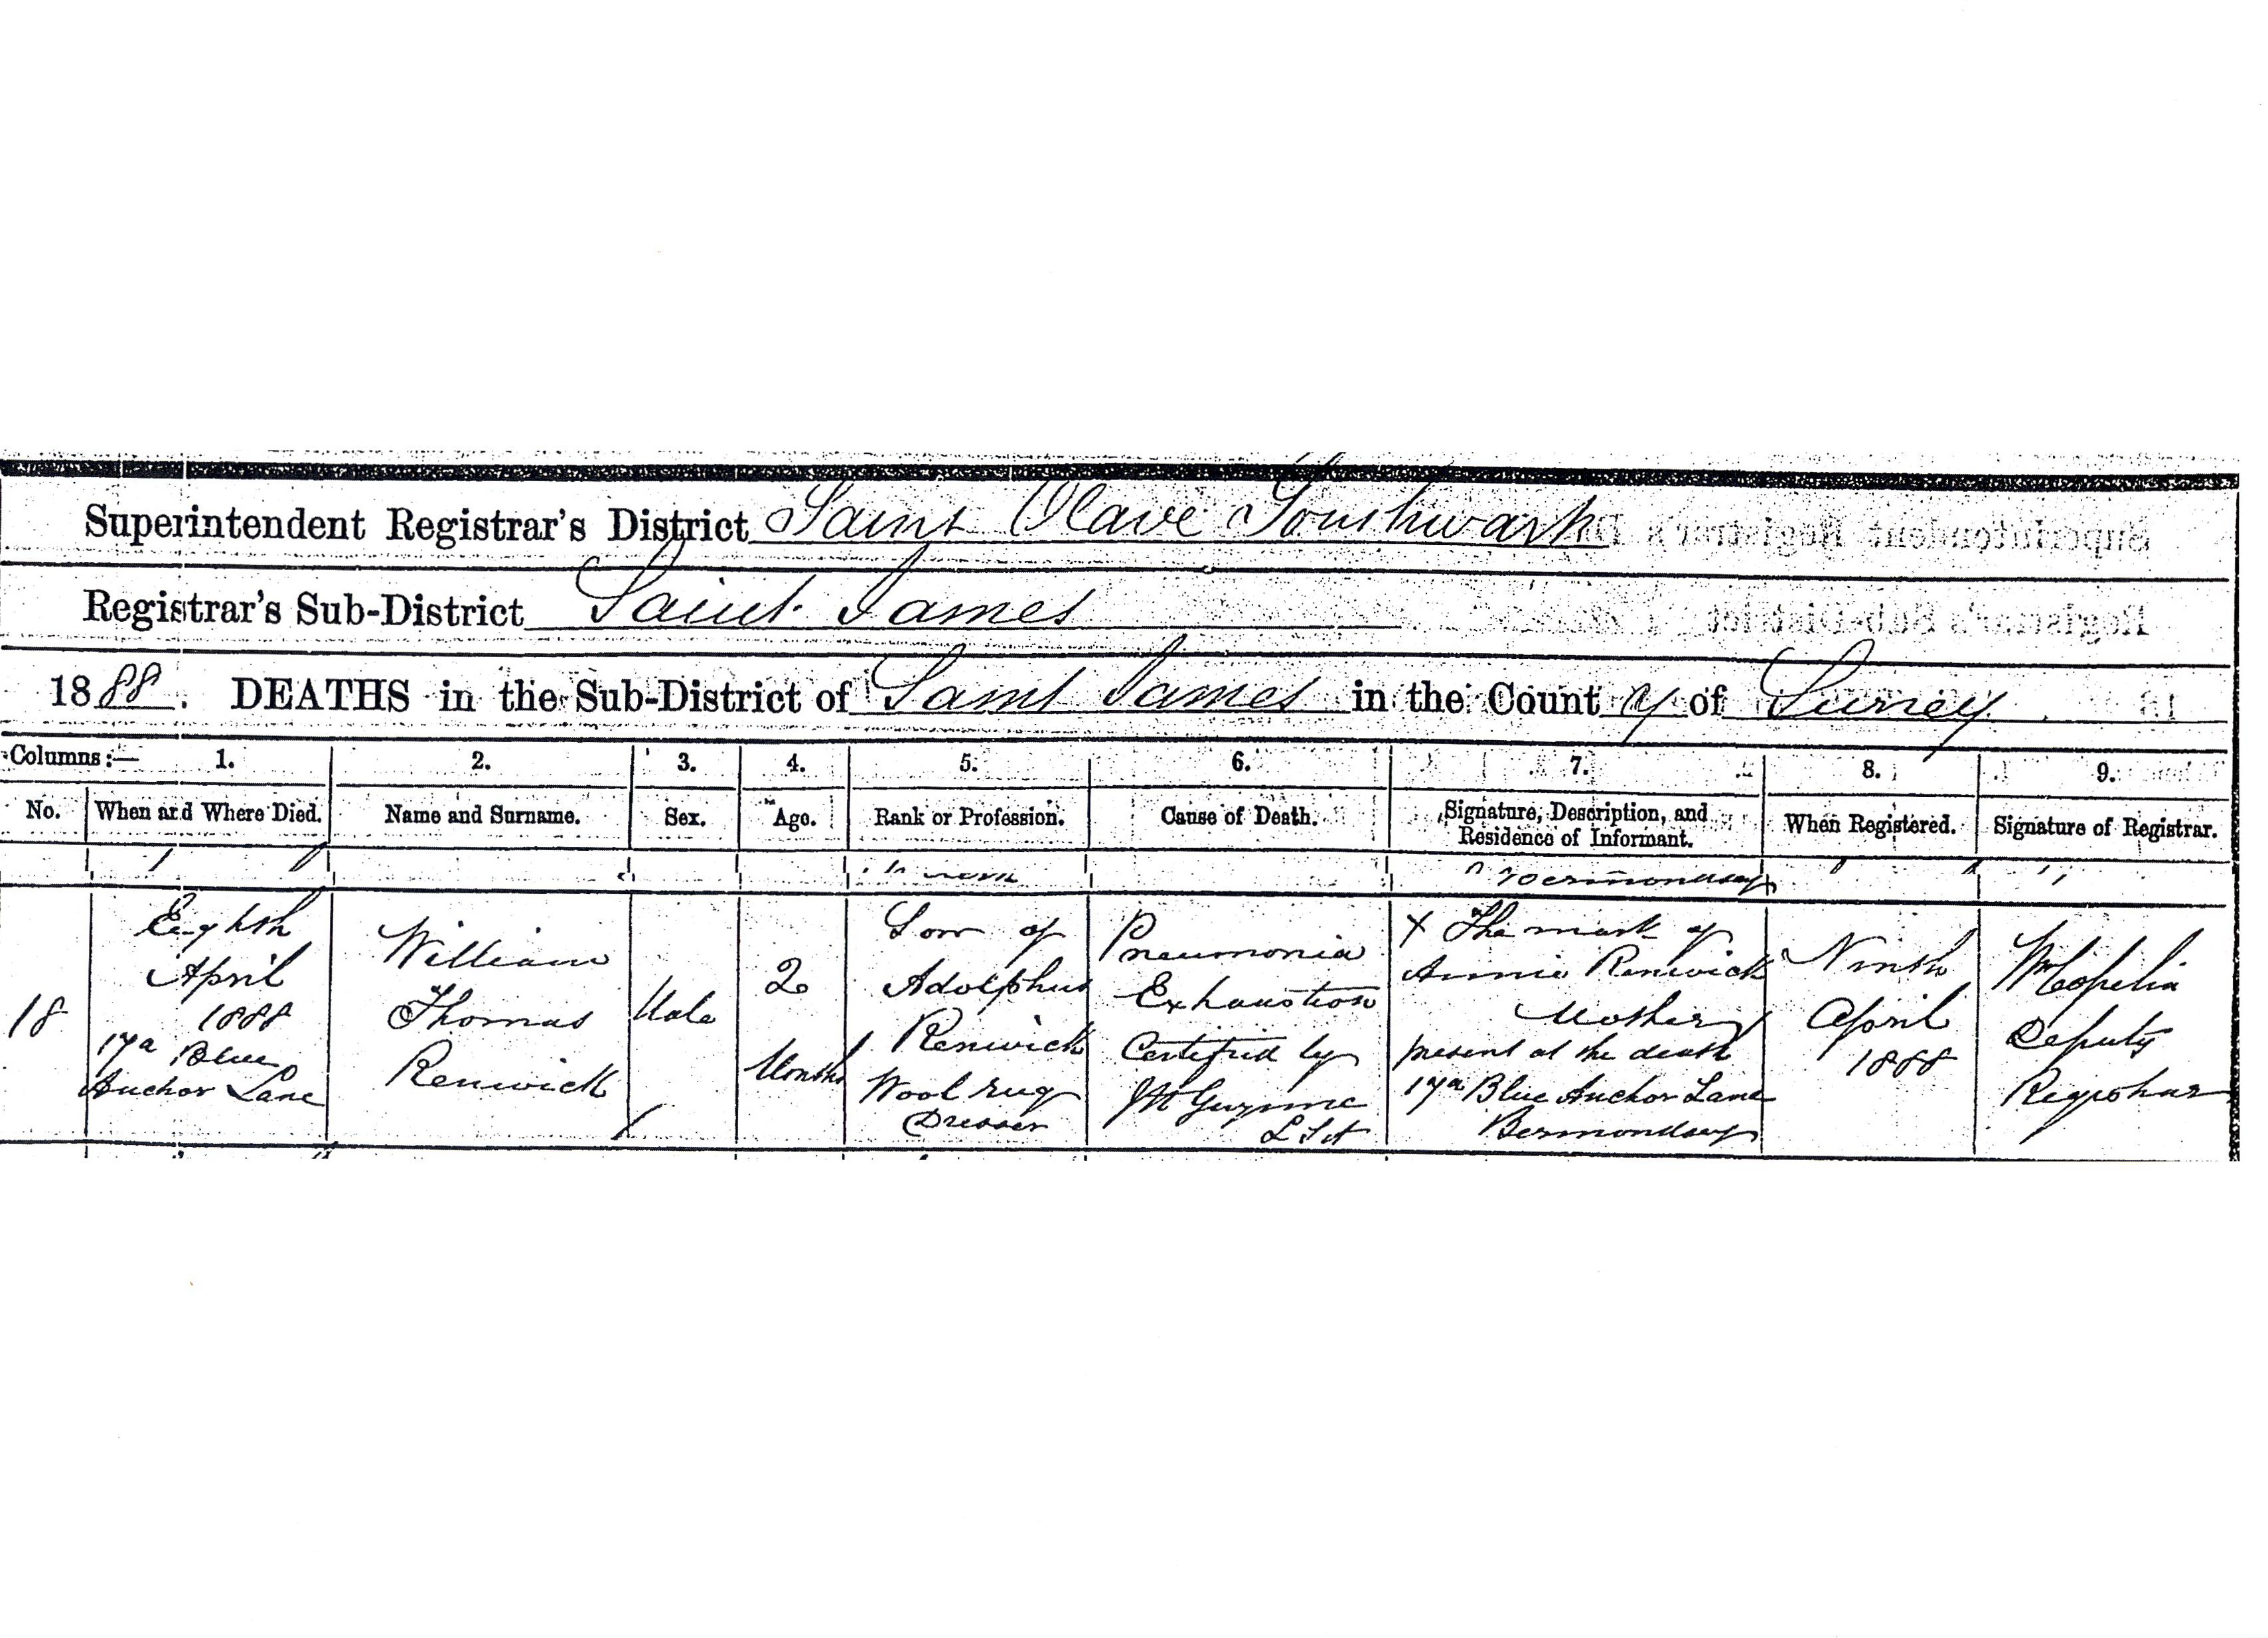 Superintendent Registrar's District Saint Olave Southwark
Registrar's Sub-District Saint James
1888. DEATHS in the Sub-District of Saint James in the County of Surrey
Columns:— 1. 2. 3. 4. 5. 6. 7. 8. 9.
No. When and Where Died. Name and Surname. Sex. Age. Rank or Profession. Cause of Death. Signature, Description, and Residence of Informant. When Registered. Signature of Registrar.
Bermondsey
18
Eighth
April
1888
17a Blue
Anchor Lane
William
Thomas
Renwick
Male
2
Months
Son of
Adolphus
Renwick
Wool rug
Dresser
Pneumonia
Exhaustion
Certified by
Gwynne
X The mark of
Annie Renwick
Mother
present at the death
17a Blue Anchor Lane
Bermondsey
Ninth
April
1888
Deputy
Registrar